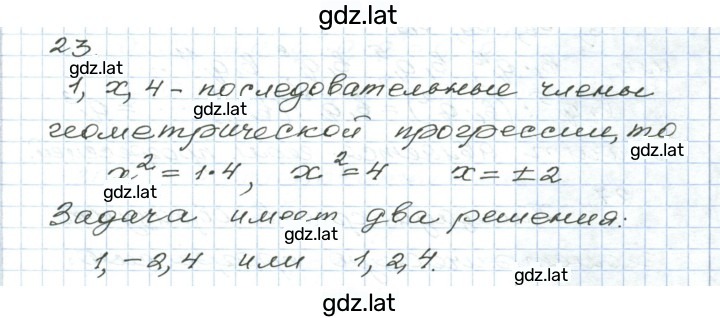 gdz.lat
23.
gdz.lat
1, x, 4 - последовательные члены
gdz.lat
геометрической прогрессии, то
gdz.lat
x² = 1·4, x² = 4 x = ±2
gdz.lat
Задача имеет два решения:
gdz.lat
1, -2, 4 или 1, 2, 4.
gdz.lat
gdz.lat